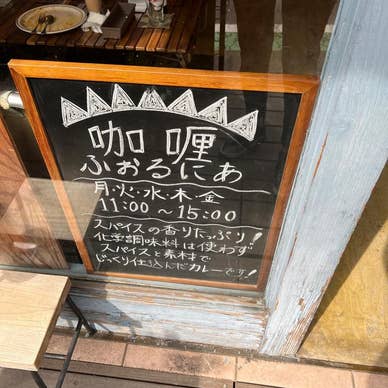 咖喱
ふぉるにあ
月・火・水・木・金
11:00～15:00
スパイスの香りたっぷり!
化学調味料は使わず
スパイスと素材で
じっくり仕込んだカレーです!